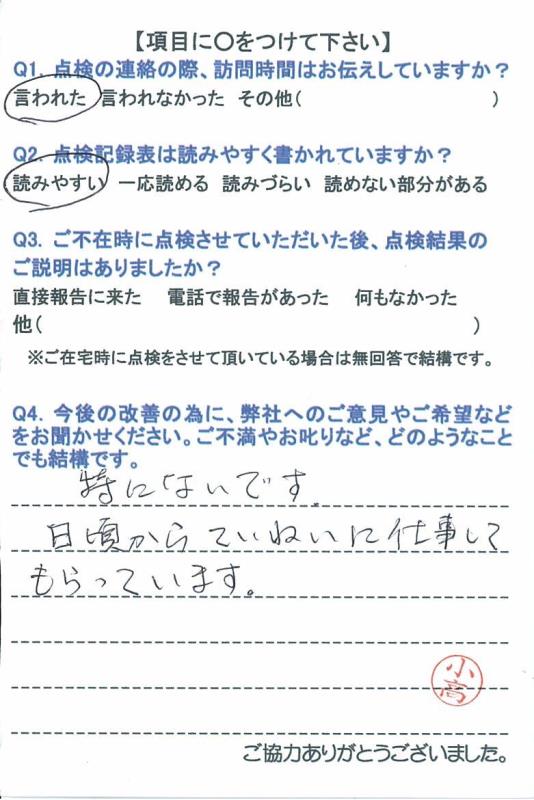 【項目に〇をつけて下さい】
Q1. 点検の連絡の際、訪問時間はお伝えしていますか？
言われた 言われなかった その他( )
Q2. 点検記録表は読みやすく書かれていますか？
読みやすい 一応読める 読みづらい 読めない部分がある
Q3. ご不在時に点検させていただいた後、点検結果の
ご説明はありましたか？
直接報告に来た 電話で報告があった 何もなかった
他( )
※ご在宅時に点検をさせて頂いている場合は無回答で結構です。
Q4. 今後の改善の為に、弊社へのご意見やご希望など
をお聞かせください。ご不満やお叱りなど、どのようなこと
でも結構です。
特にないです.
日頃からていねいに仕事して
もらっています。
小高
ご協力ありがとうございました。